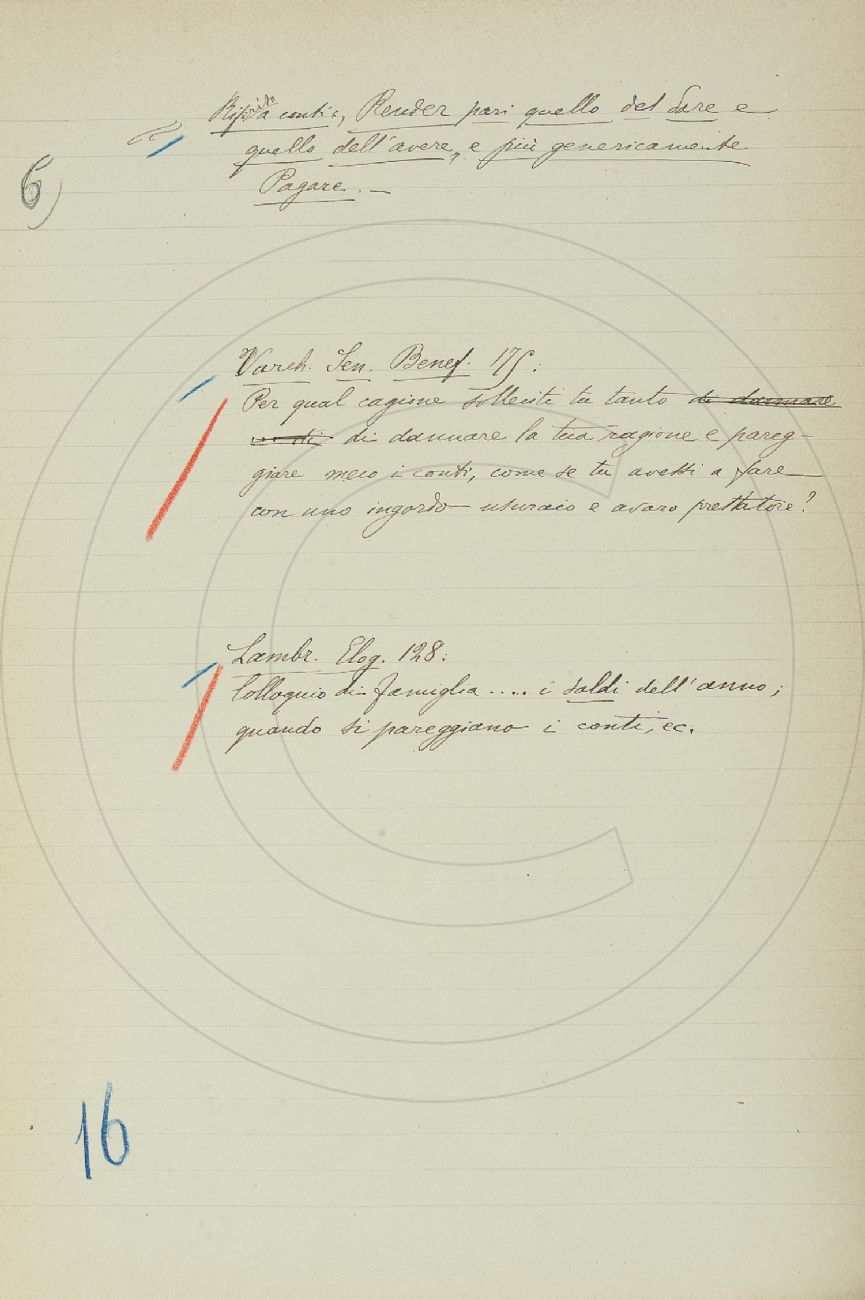 Riferito a conti, Render pari quello del dare e
quello dell'avere, e più genericamente
6)
Pagare. —
Varch. Sen. Benef. 175:
Per qual cagione solleciti tu tanto di dannare
di dannare la tua ragione e pareg-
giare meco i conti, come se tu avessi a fare
con uno ingordo usuraio e avaro prestatore?
Lambr. Elog. 128:
Colloquio di famiglia ..... i saldi dell'anno;
quando si pareggiano i conti, ec.
16